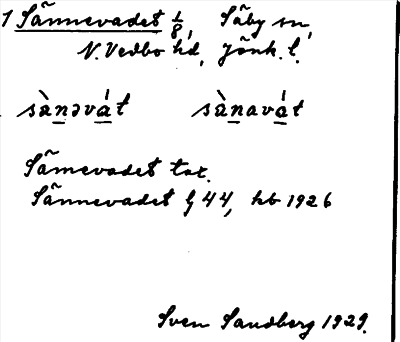 1 Sännevadet 1/8, Säby sn,
N. Vedbo hd, Jönk. l.
sànəvát sànavát
Sämevadet tax.
Sännevadet G 44, hb 1926
Sven Sandberg 1929.